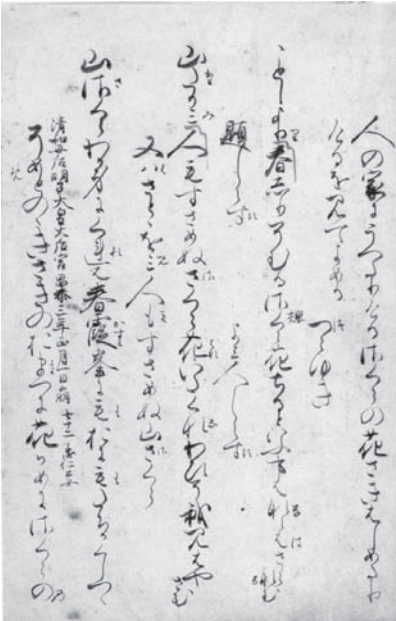 人の家にうへたりけるさくらの花さきはしめたり
けるを見てよめる
つらゆき
ことしより春しりそむるさくら花ちるといふ事はならはさらなむ
題しらす
よみ人しらす
山たかみ人もすさめぬさくら花いたくなわひそ我見はやさむ
又はさとゝほみ人もすさめぬ山さくら
山さくらわか見にくれは春霞峯にもおにもたちかくしつゝ
清和母后明子太皇大后宮 三年正月一日崩七十二忠仁公女
そめとのゝきさきのおまへに花かめにさくらの